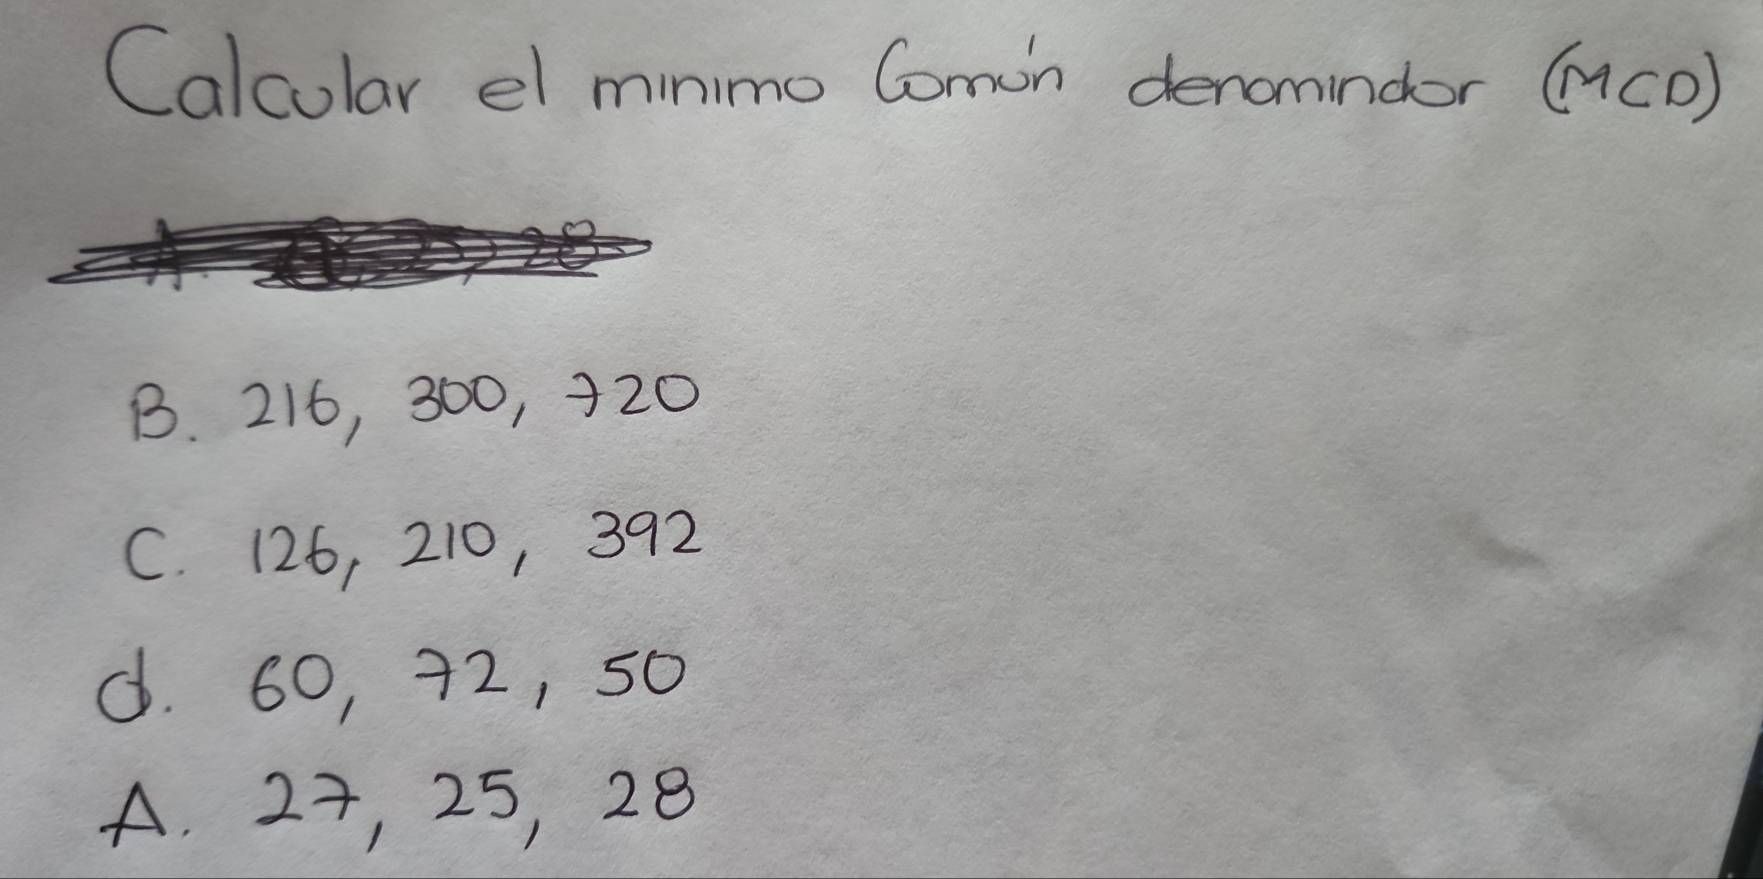 Calcular el minimo Común denomindor (MCD)
B. 216, 300, 720
C. 126, 210, 392
d. 60, 72, 50
A. 27, 25, 28